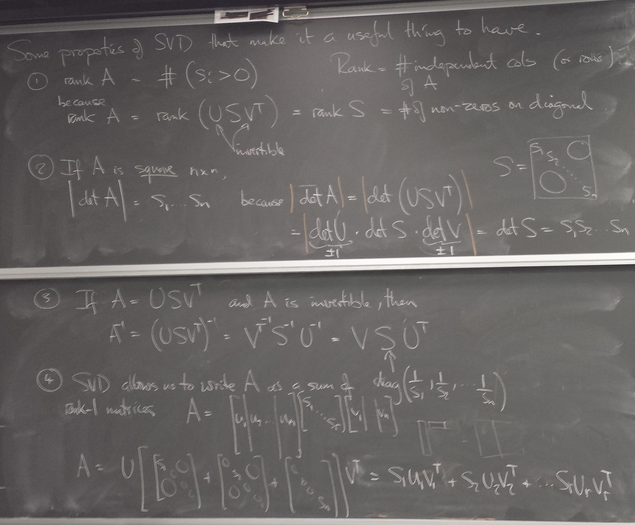 Some propeties of SVD that make it a useful thing to have.
① rank A = # (Sᵢ > 0)
Rank = # independent cols (or rows) of A
because
rank A = rank (USVᵀ) = rank S = # of non-zeros on diagonal
invertible
② If A is square n×n,
|det A| = S₁...Sₙ because |det A| = |det (USVᵀ)|
S = [S₁ S₂ ⋱ Sₙ]
= |det U · det S · det V| = det S = S₁S₂...Sₙ
±1 ±1
③ If A = USVᵀ and A is invertible, then
A⁻¹ = (USVᵀ)⁻¹ = Vᵀ⁻¹ S⁻¹ U⁻¹ = V S Uᵀ
diag(1/S₁, 1/S₂, ... 1/Sₙ)
④ SVD allows us to write A as a sum of
rank-1 matrices A = [u₁ u₂ ... uₘ] [S₁ ... Sₙ] [v₁ vₙ]
A = U [[S₁ 0 0] + [0 S₂ 0] + [0 0 Sₙ]] Vᵀ = S₁U₁V₁ᵀ + S₂U₂V₂ᵀ + ... SᵣUᵣVᵣᵀ